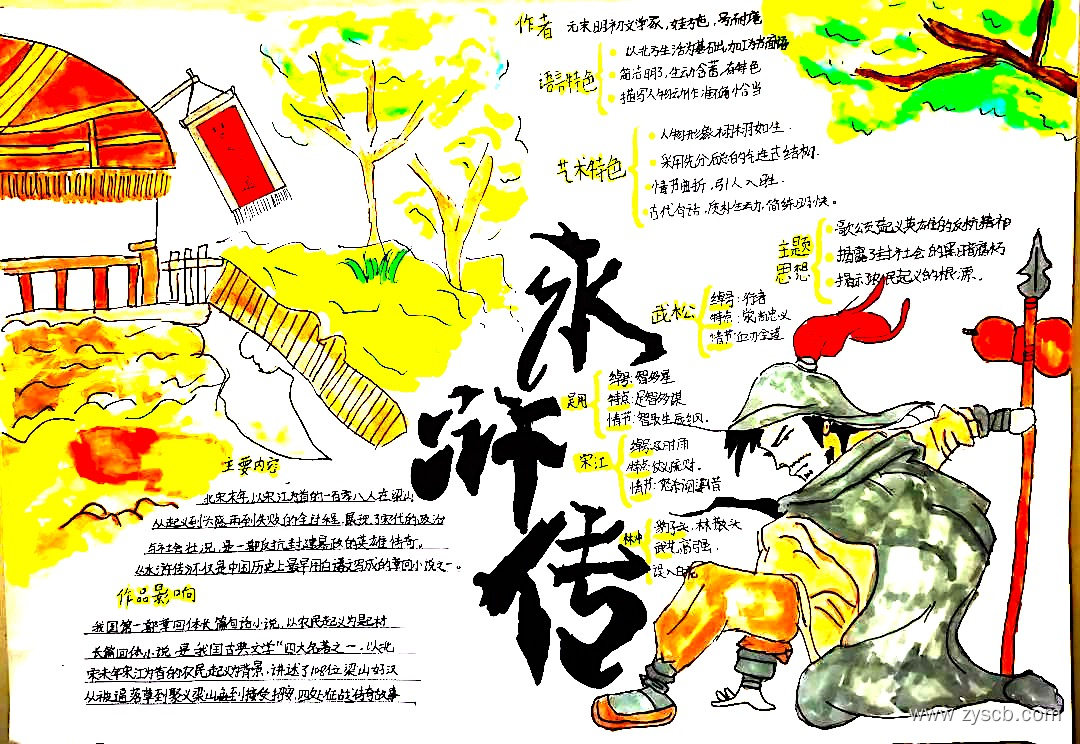 作者 元末明初文学家,姓施,名耐庵
语言特色
以北方生活为基础,加工为书面语
简洁明了,生动含蓄,有特色
描写人物动作准确恰当
艺术特色
人物形象栩栩如生.
采用先分后合的链连式结构.
情节曲折,引人入胜.
古代白话,质朴生动,简练明快。
主题思想
歌公页起义英雄的反抗精神
揭露了封建社会的黑暗腐朽
揭示农民起义的根源.
武松
绰号:行者
特点:崇尚忠义
情节:血刃
吴用
绰号:智多星
特点:足智多谋
情节:智取生辰纲.
宋江
绰号:及时雨
特点:仗义疏财.
情节:怒杀阎婆惜
林冲
豹子头.林教头
武艺高强.
误入白虎
水浒传
主要内容
北宋末年以宋江为首的一百零八人在梁山
从起义到兴盛再到失败的全过程,展现了宋代的政治
与社会状况,是一部反抗封建暴政的英雄传奇。
《水浒传》不仅是中国历史上最早用白话文写成的章回小说之一。
作品影响
我国第一部章回体长篇白话小说,以农民起义为题材
长篇回体小说 是我国古典文学"四大名著之一,以北
宋末年宋江为首的农民起义为背景,讲述了108位梁山好汉
从被逼落草到聚义梁山庙到接受招安,四处征战传奇故事
www.zyscb.com